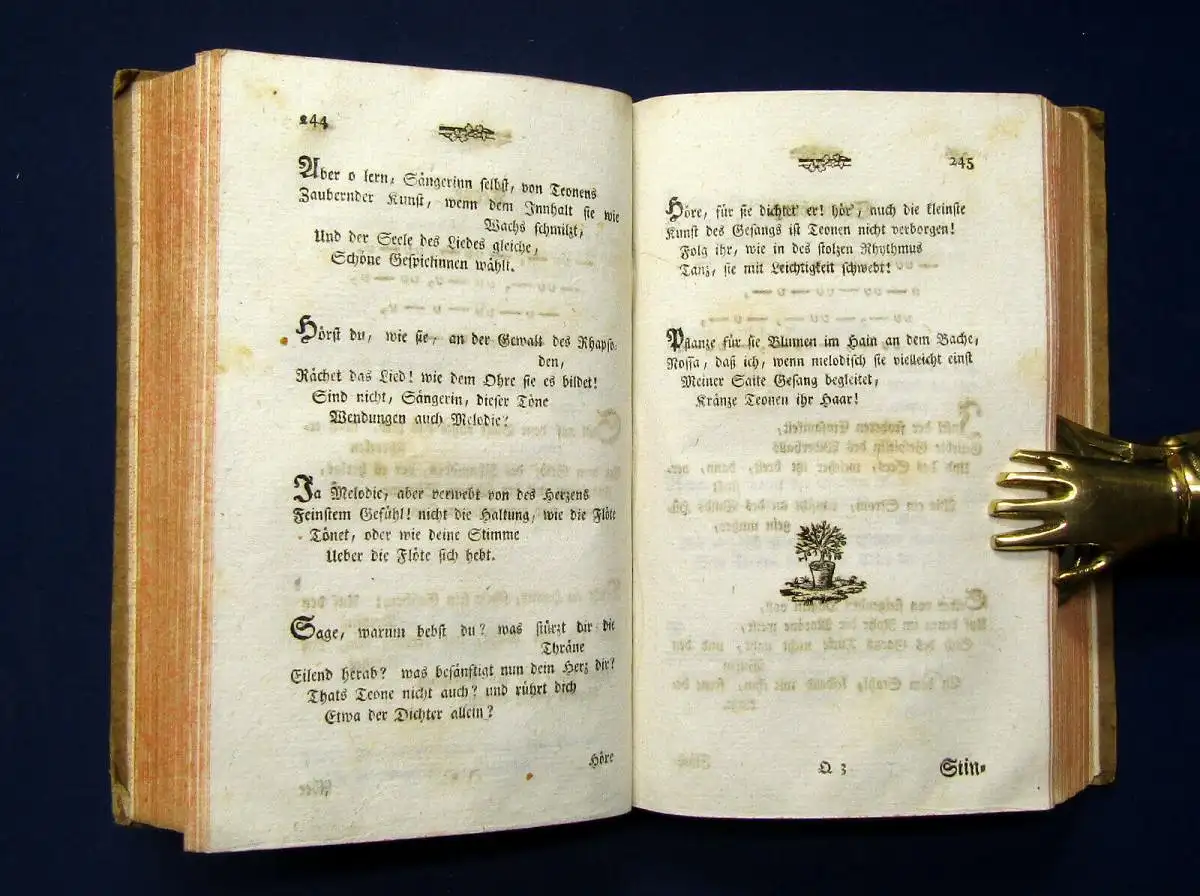 244
Aber o lern, Sångerinn selbst, von Teonens
Zaubernder Kunst, wenn dem Innhalt sie wie
Wachs schmilzt,
Und der Seele des Liedes gleiche,
Schöne Gespielinnen wåhlt.
Hörst du, wie sie, an der Gewalt des Rhapso-
den,
Råchet das Lied! wie dem Ohre sie es bildet!
Sind nicht, Sångerin, dieser Töne
Wendungen auch Melodie?
Ja Melodie, aber verwebt von des Herzens
Feinstem Gefühl! nicht die Haltung, wie die Flöte
Tönet, oder wie deine Stimme
Ueber die Flöte sich hebt.
Sage, warum bebst du? was stürzt dir die
Thråne
Eilend herab? was besånftigt nun dein Herz dir?
Thats Teone nicht auch? und rührt dich
Etwa der Dichter allein?
Höre
245
Höre, für sie dichtet er! hör, auch die kleinste
Kunst des Gesangs ist Teonen nicht verborgen!
Folg ihr, wie in des stolzen Rhythmus
Tanz, sie mit Leichtigkeit schwebt!
Pflanze für sie Blumen im Hain an dem Bache,
Nossa, daß ich, wenn melodisch sie vielleicht einst
Meiner Saite Gesang begleitet,
Krånze Teonen ihr Haar!
Q 3
Stin-